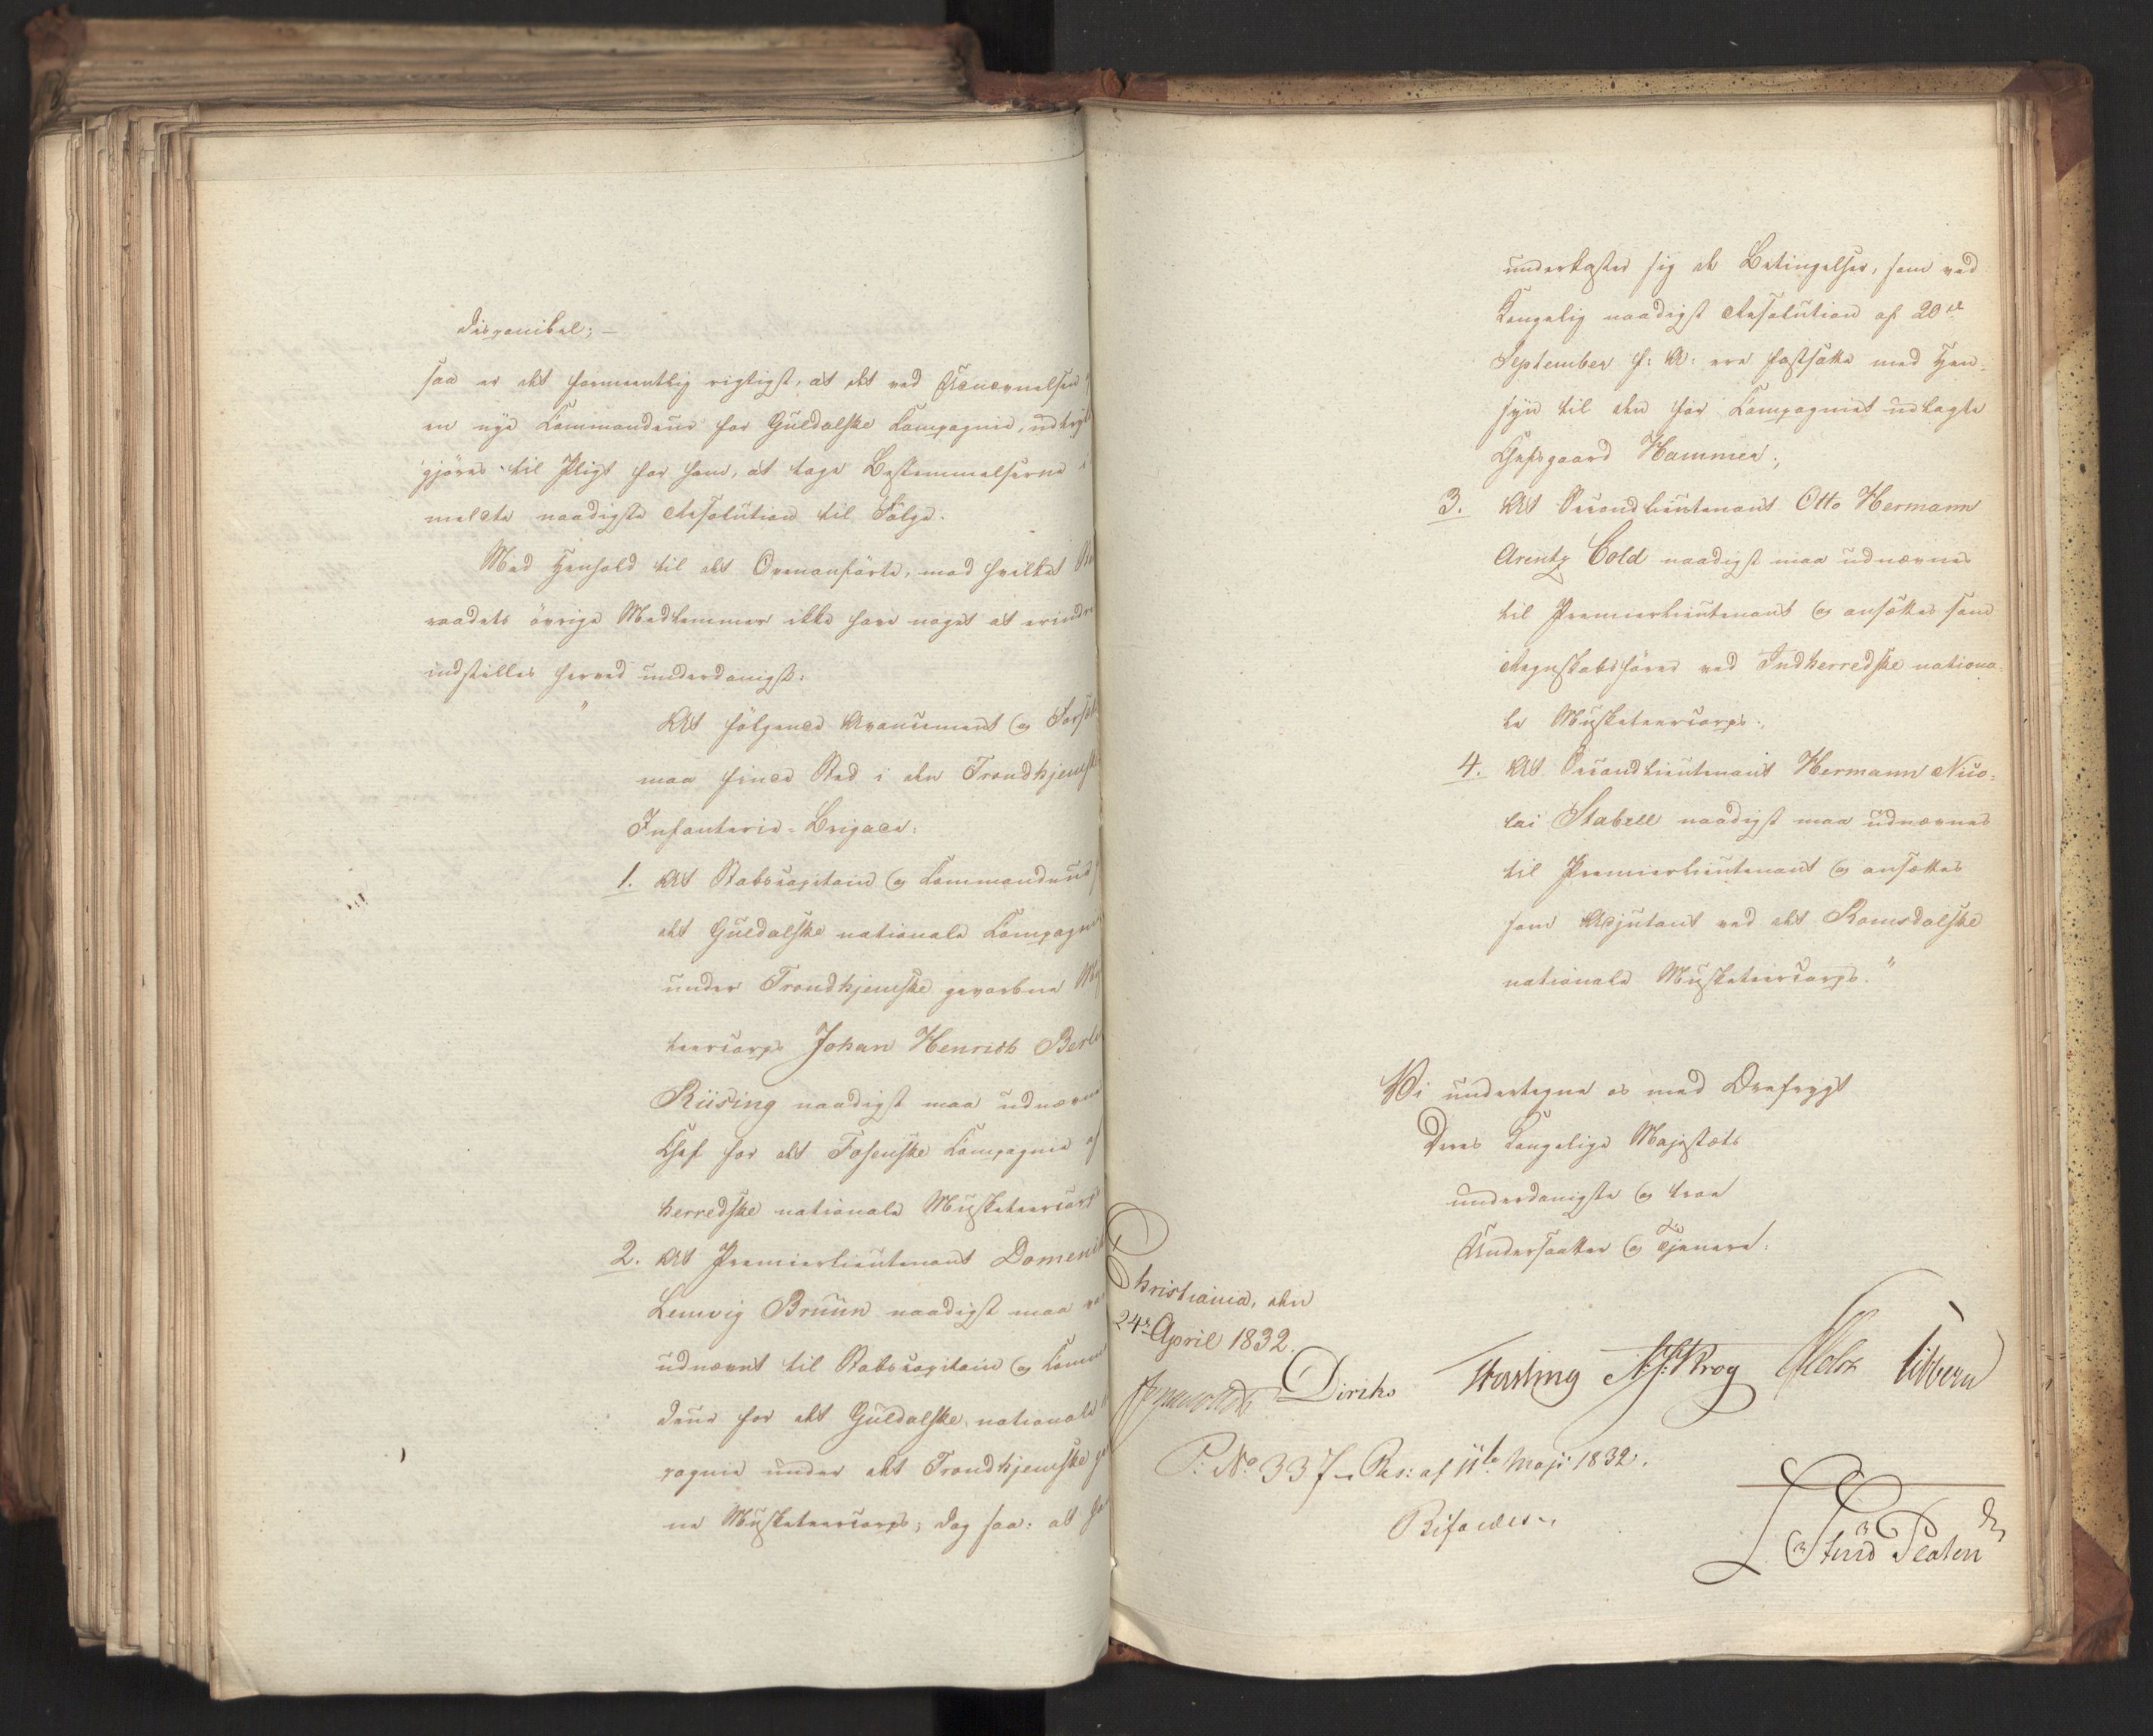 disponibel; —
saa er det formeentlig rigtigst, at det ved Udnævnelsen
en nye Commandeur for Guldalske Compagnie, udtryk
gjøres til Pligt for ham, at tage Bestemmelserne i
meldte naadigste Resolution til Følge.
Med Henhold til det Ovenanførte, mod hvilket
raadets övrige Medlemmer ikke have noget at erindre
indstilles herved underdanigst:
" At følgende Avancement og Forsæt
maa finde Sted i den Trondhjemske
Infanterie-Brigade:
1. At Stabscapitain og Commandeur
det Guldalske nationale Compagnie
under Trondhjemske gevorbne
teercorps Johan Henrich
Riising naadigst maa udnævnes
Chef for det Fosenske Compagnie af
herredske nationale Musketeercorps
2. At Premierlieutenant
Lemvig Bruun naadigst maa
udnævnt til Stabscapitain og Comman
deur for det Guldalske nationale
pagnie under det Trondhjemske ge
ne Musketeercorps; dog saa: at han
underkaster sig de Betingelser, som ved
Kongelig naadigst Resolution af 20de
September f: A: ere fastsatte med Hen-
syn til den for Compagniet udlagte
Chefsgaard Hammer;
3. At Secondlieutenant Otto Hermann
Arentz Cold naadigst maa udnævnes
til Premierlieutenant og ansættes som
Regnskabsfører ved Indherredske nationa-
le Musketeercorps;
4. At Secondlieutenant Hermann Nico-
lai Stabell naadigst maa udnævnes
til Premierlieutenant og ansættes
som Adjutant ved det Romsdalske
nationale Musketeercorps."
Vi undertegne os med Ærefrygt
Deres Kongelige Majestæts
underdanigste og troe
Undersaatter og Tjenere:
Christiania, den
24de April 1832.
Diriks Hersleng Krog Holst Vibern
P: No 337 – Res: af 11te Maji 1832.
Bifaldes.
Platen